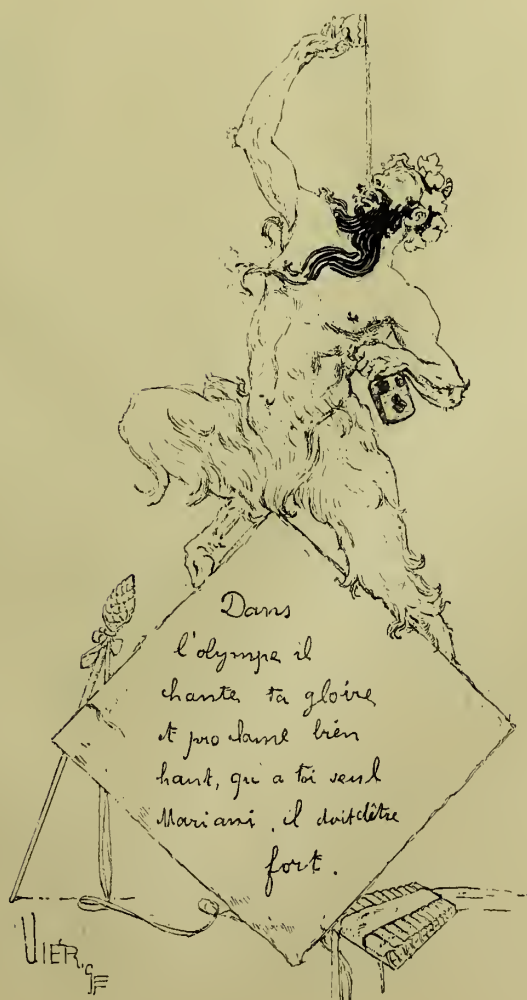 Dans
l'olympe il
chante ta gloire
et proclame bien
haut, qu'a toi seul
Mariani, il doit d'être
fort.
VIERGE